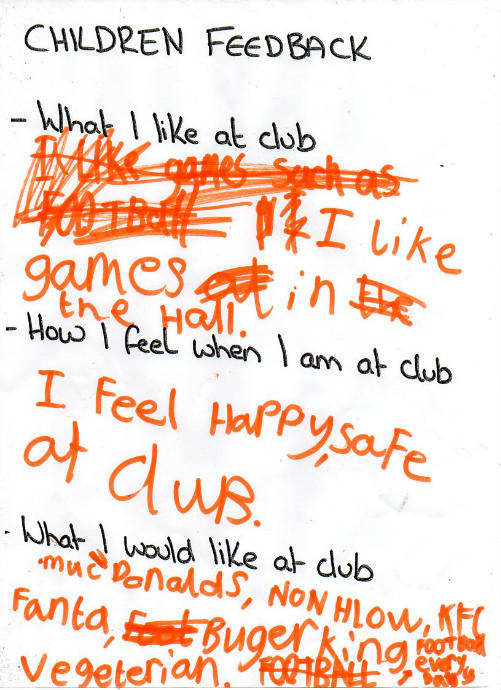 CHILDREN FEEDBACK
- What I like at club
I Like games such as
FOOTBall I like
games in
the Hall.
- How I feel when I am at club
I Feel Happy, safe
at club.
- What I would like at club
muc Donalds, NON HLOW, KFC
Fanta, Buger king,
vegeterian. FOOTBALL
FOOTBall
every